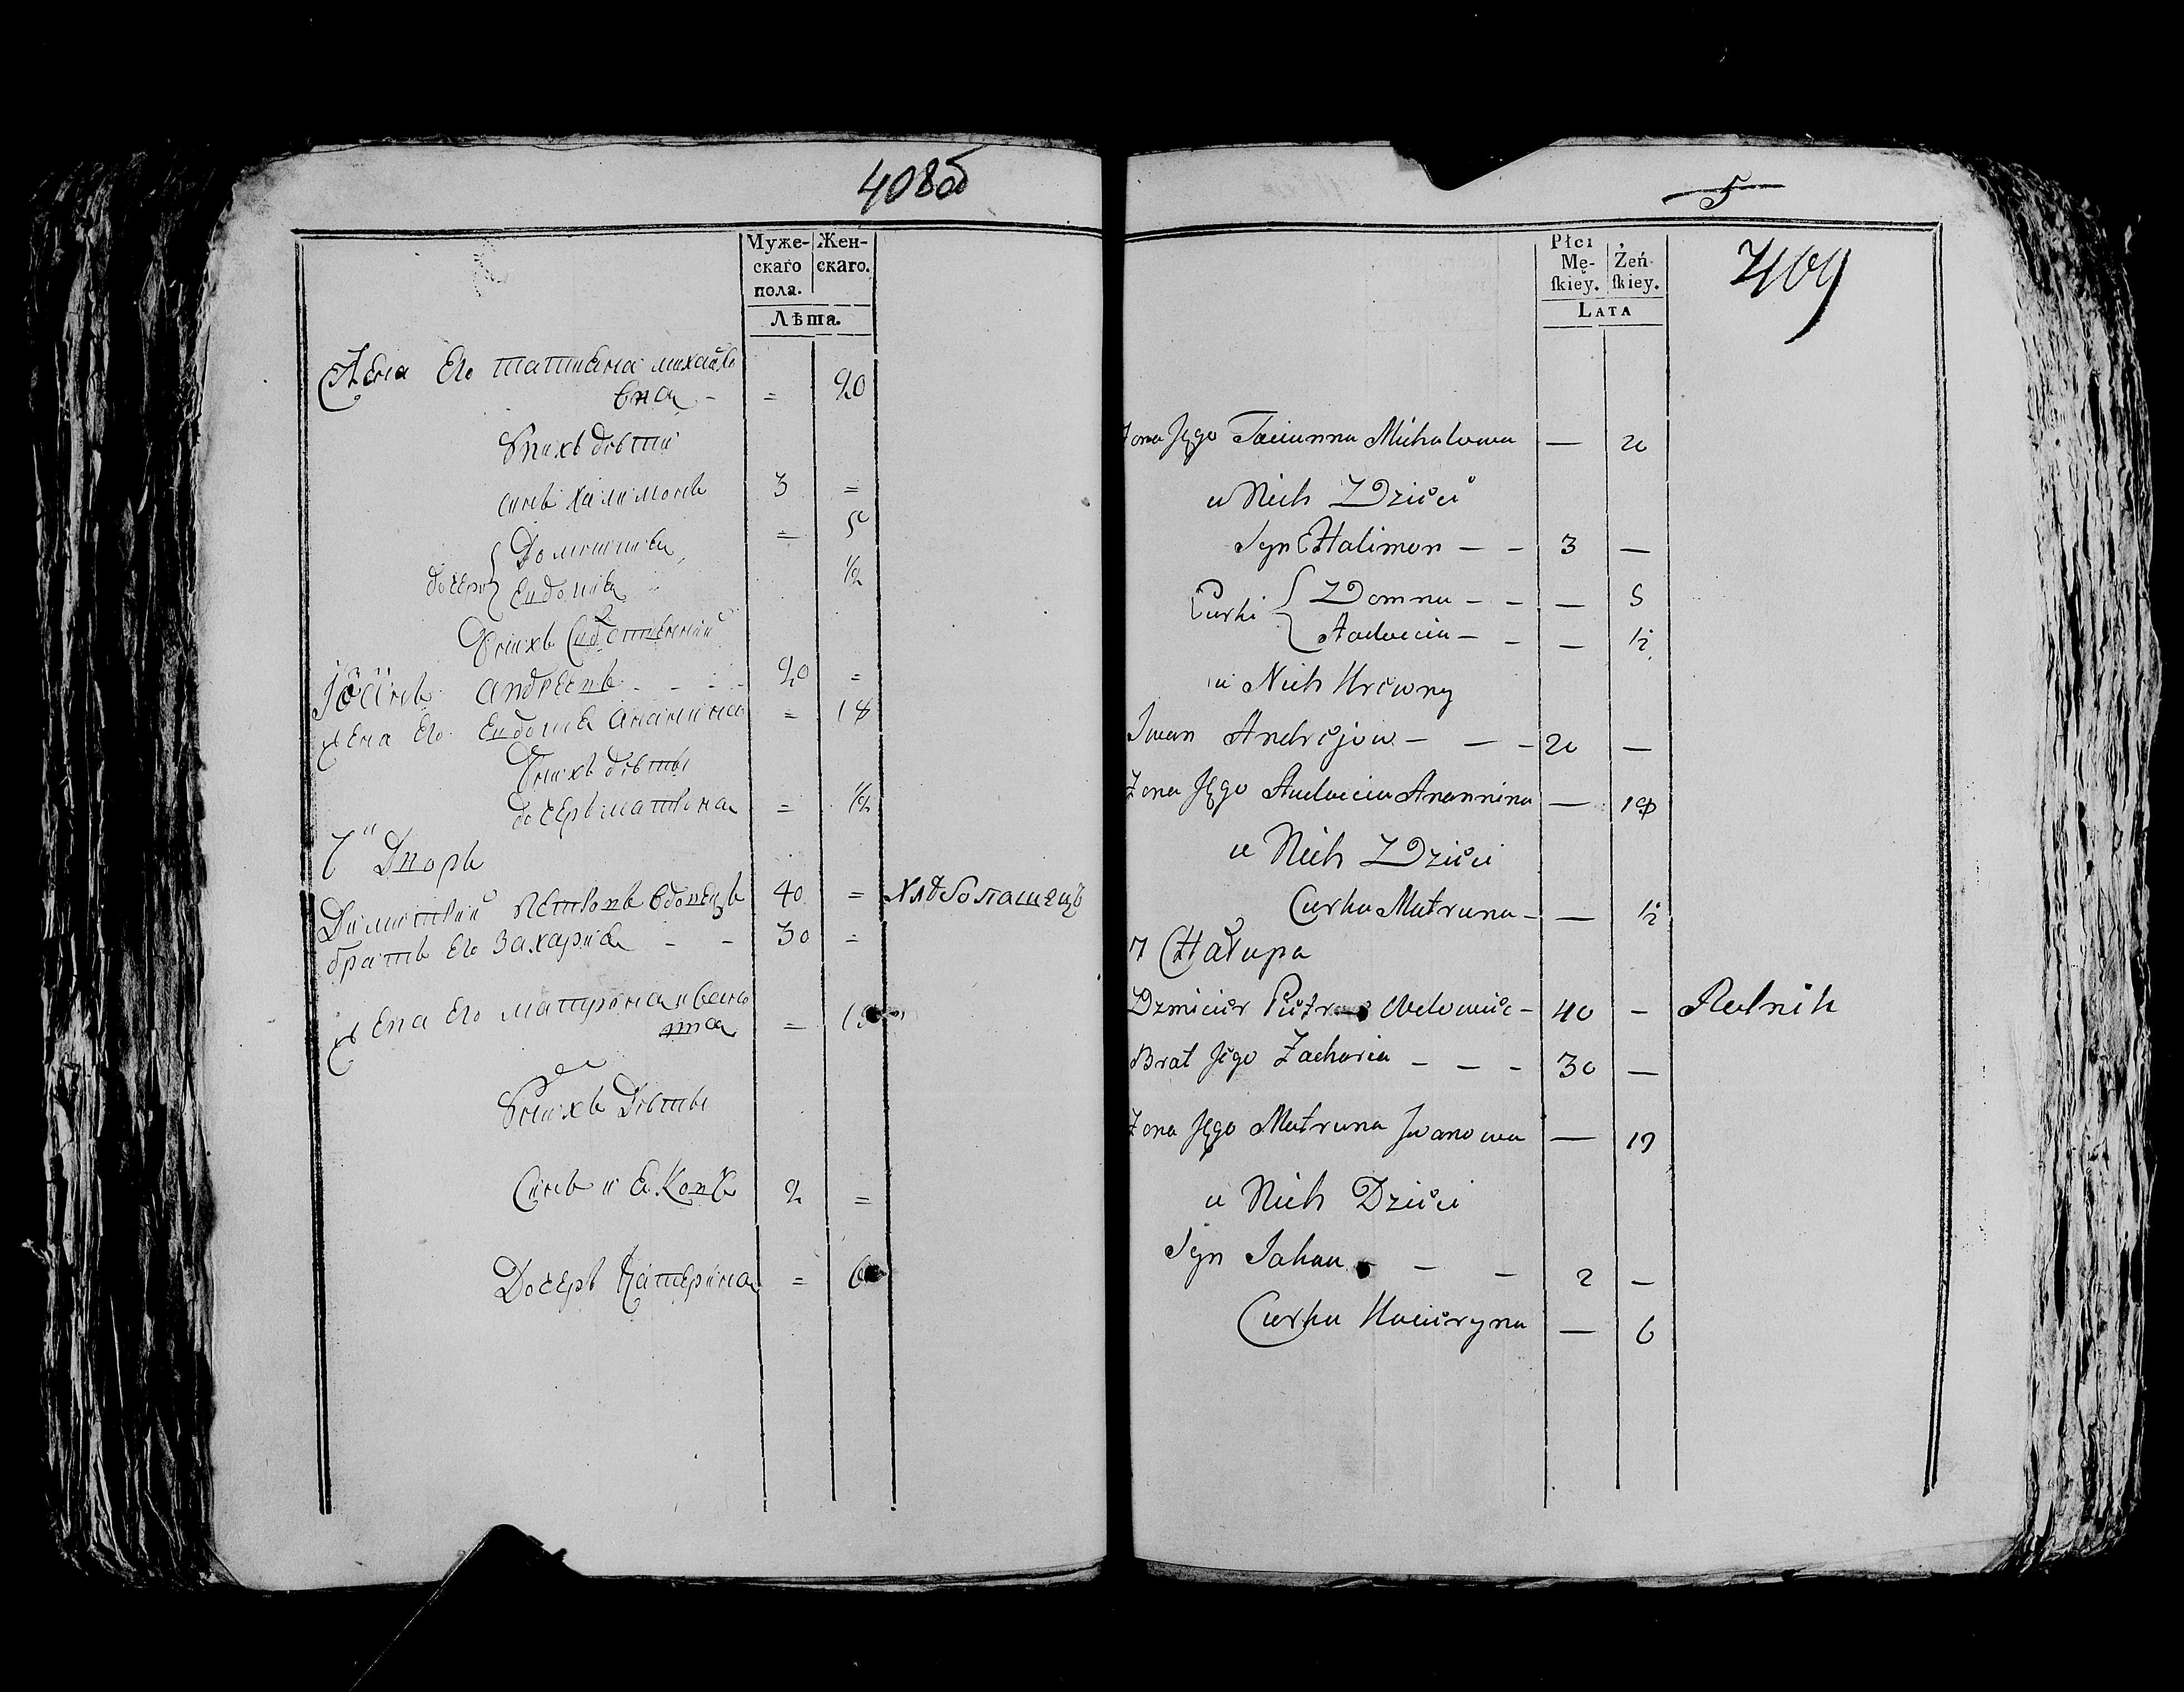 408об
Муже-
скаго
пола.
Жен-
скаго.
Лѣта.
Жена Его Татиана михайло
вна - = 20
Внихъ дѣти
синъ халимонъ 3 =
дочери { Домникиа = 5
Евдокиа 1/2
Внихъ
Іоанъ андреевъ - - - 20 =
жена Его Евдокиа ананина = 18
Внихъ дѣты
дочерь матрона = 1/2
7 Дворъ
Димитрий петровъ вдовецъ 40 = Хлѣбопашецъ
братъ Его Захариа - - 30 =
жена Его матрона ивано
вна =
Внихъ Дѣты
Синъ Иаковъ 2 =
Дочерь Катерина = 6
5
409
Płci
Mę-
ſkiey.
Żeń-
ſkiey.
LATA
Żona Jego Tacianna Michałowa — 20
u Nich Dzieci
Syn Halimon — - 3 —
Curki { Domna - - — 5
Audocia - - — 1/2
u Nich Krewny
Iwan Andrejow - — - 20 —
Żona Jego Audocia Anannina — 18
u Nich Dzieci
Curka Matruna - — 1/2
7 Chałupa
Dzmicier Pietrow Wdowiec - 40 - Rolnik
Brat Jego Zacharia - - - 30 —
Żona Jego Matruna Jwanowa — 19
u Nich Dzieci
Syn Jakau - - - 2 —
Curka Kacieryna — 6